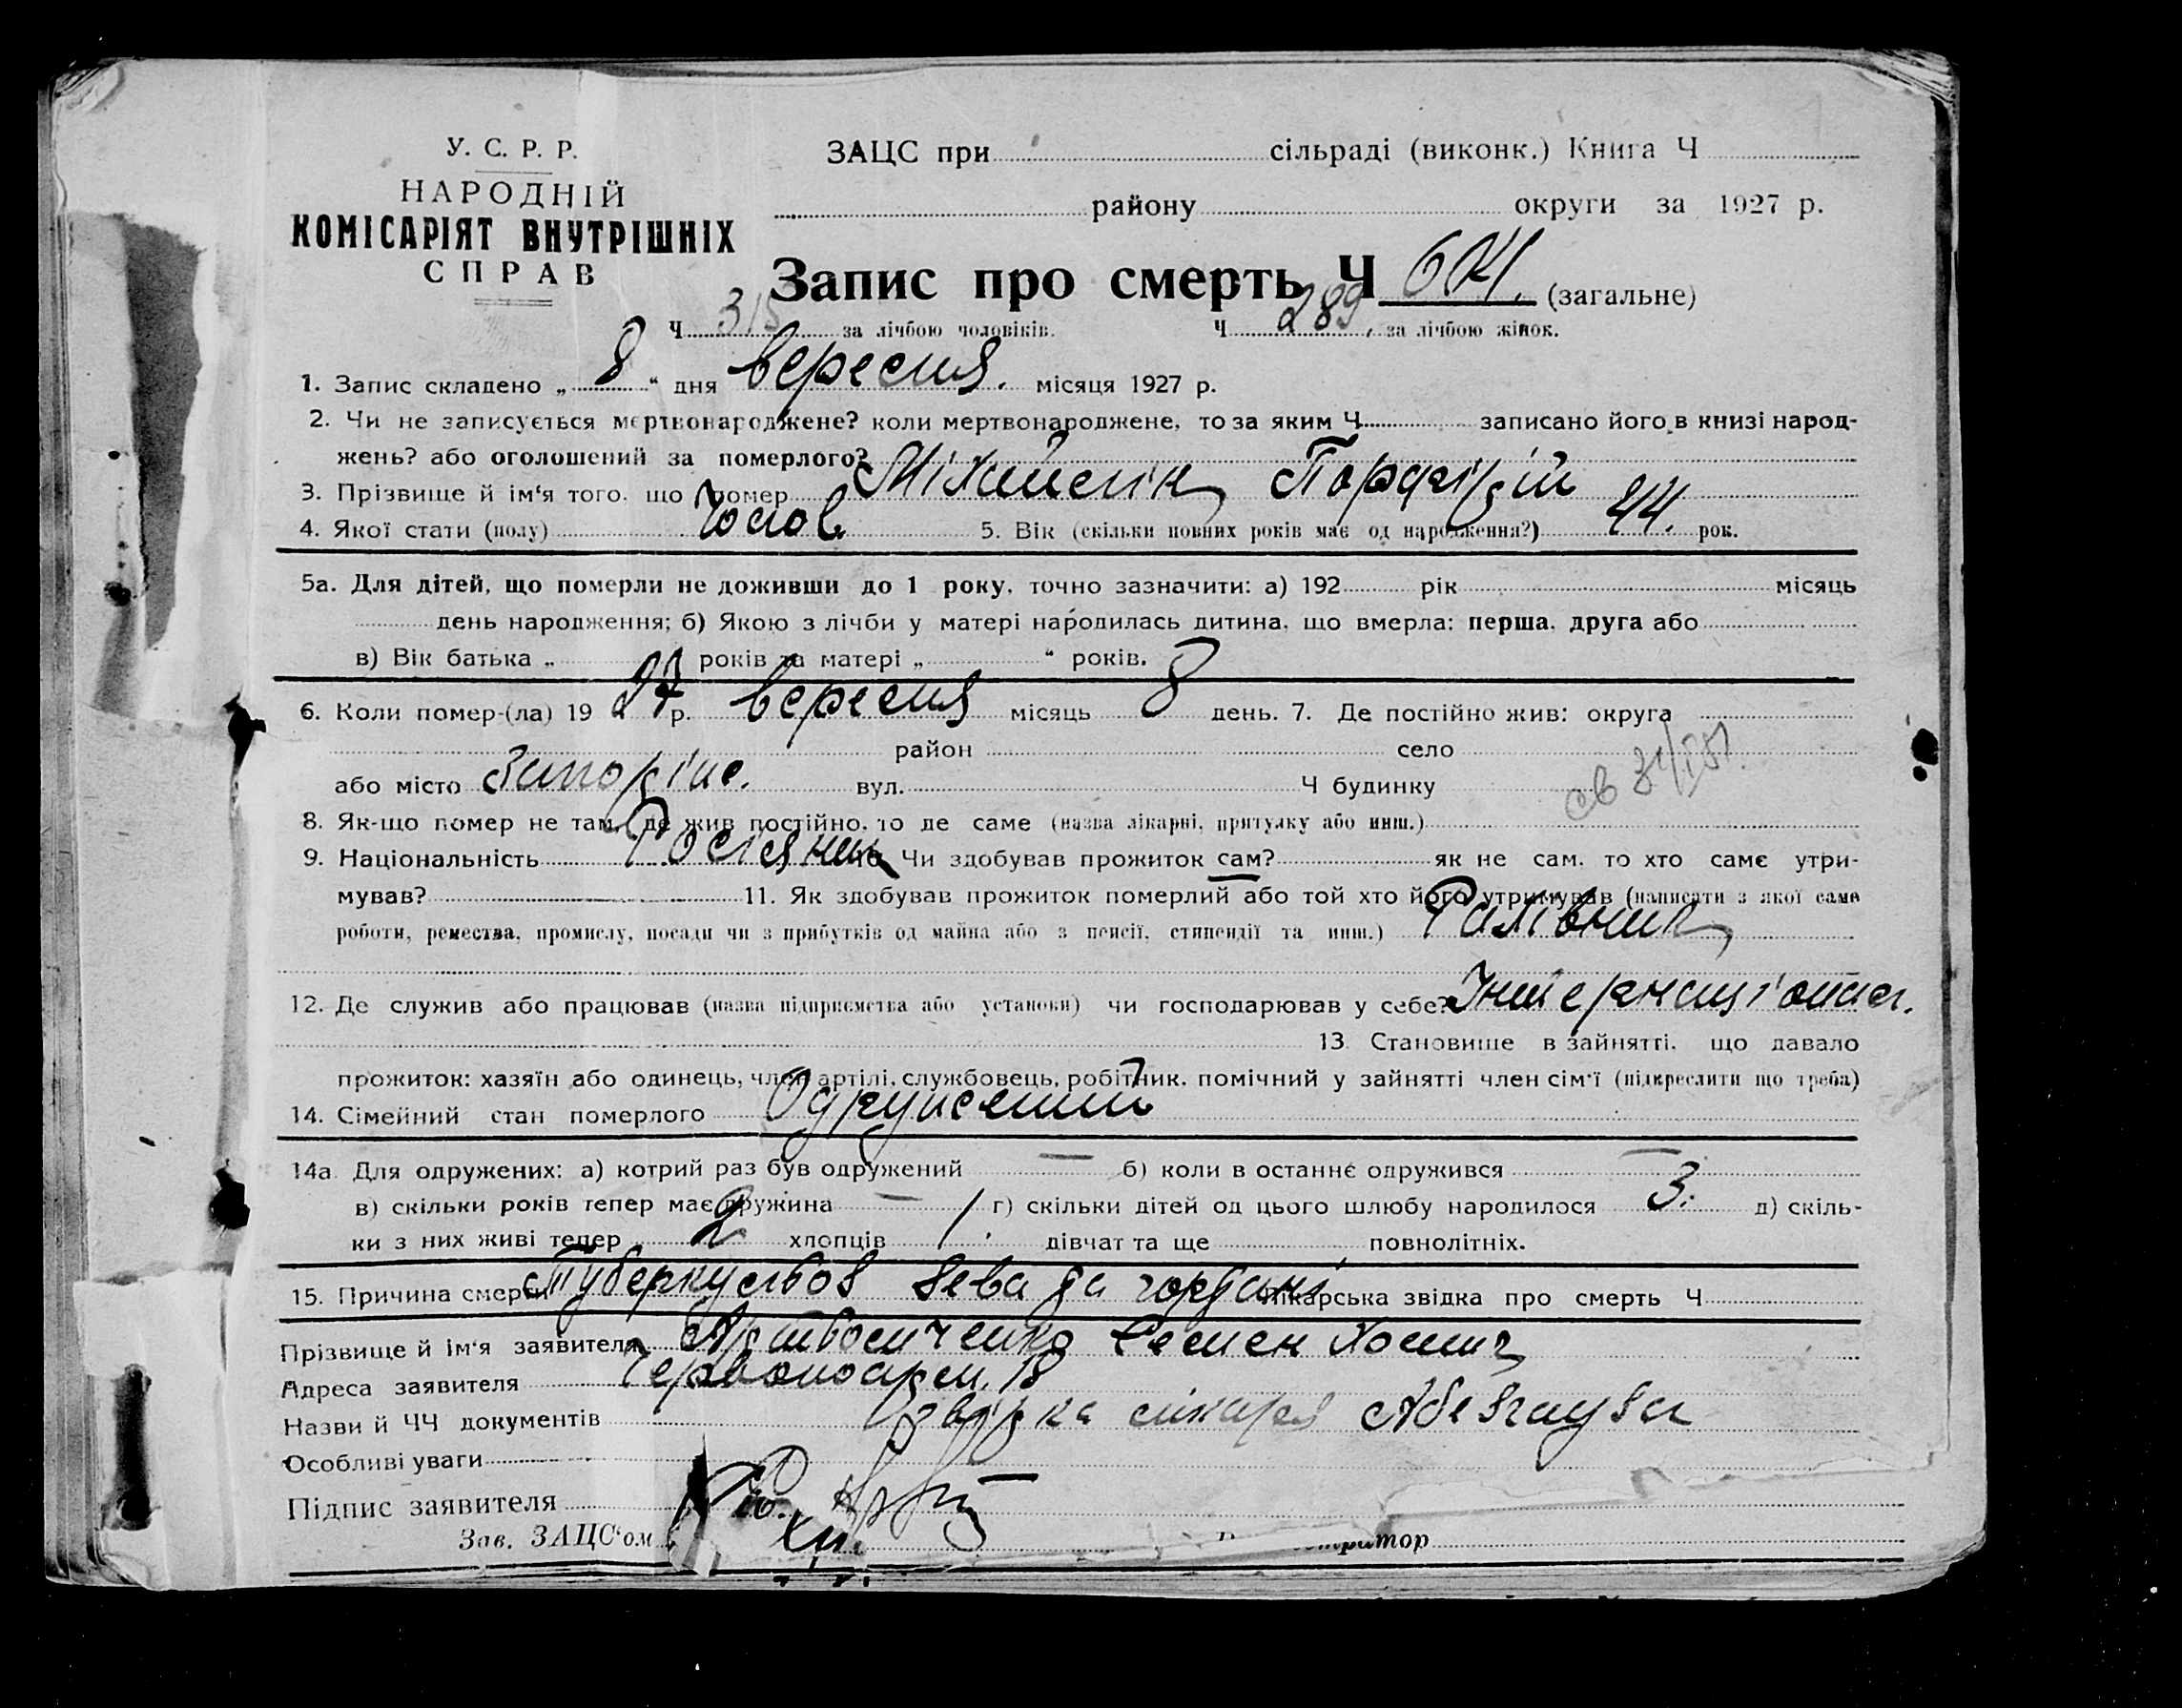 У. С. Р. Р.
НАРОДНІЙ
КОМІСАРІЯТ ВНУТРІШНІХ
СПРАВ
ЗАЦС при сільраді (виконк.) Книга Ч
району округи за 1927 р.
Запис про смерть Ч 604. (загальне)
Ч 315 за лічбою чоловіків. Ч 289 за лічбою жінок.
1. Запис складено „ 8 “ дня вересня. місяця 1927 р.
2. Чи не записується мертвонароджене? коли мертвонароджене, то за яким Ч записано його в книзі народ-
жень? або оголошений за померлого?
3. Прізвище й ім'я того, що помер
4. Якої стати (полу) Чолов 5. Вік (скільки повних років має од народження?) 44. рок.
5а. Для дітей, що померли не доживши до 1 року, точно зазначити: а) 192 рік місяць
день народження; б) Якою з лічби у матері народилась дитина, що вмерла: перша, друга або
в) Вік батька „ років та матері „ “ років.
6. Коли помер-(ла) 19 27 р. вересня місяць 8 день. 7. Де постійно жив: округа
район село
або місто Запоріже. вул. Ч будинку
8. Як-що помер не там, де жив постійно, то де саме (назва лікарні, притулку або инш.)
9. Національність Росіянин Чи здобував прожиток сам? як не сам, то хто саме утри-
мував? 11. Як здобував прожиток померлий або той хто його утримував (написати з якої саме
роботи, ремества, промислу, посади чи з прибутків од майна або з пенсії, стипендії та инш.)
12. Де служив або працював (назва підприємства або установи) чи господарював у себе? Інтернаціонал.
13. Становише в зайнятті, що давало
прожиток: хазяїн або одинець, член артілі, службовець, робітник, помічний у зайнятті член сім'ї (підкреслити що треба)
14. Сімейний стан померлого Одружений
14а. Для одружених: а) котрий раз був одружений — б) коли в останнє одружився —
в) скільки років тепер має дружина — г) скільки дітей од цього шлюбу народилося 3. д) скіль-
ки з них живі тепер 2 хлопців 1. дівчат та ще повнолітніх.
15. Причина смерти Туберкульоз зева та гортані Лікарська звідка про смерть Ч
Прізвище й ім'я заявителя Семен
Адреса заявителя Червоноарм. 18
Назви й ЧЧ документів лікаря Абезгауза
Особливі уваги
Підпис заявителя
Зав. ЗАЦС'ом